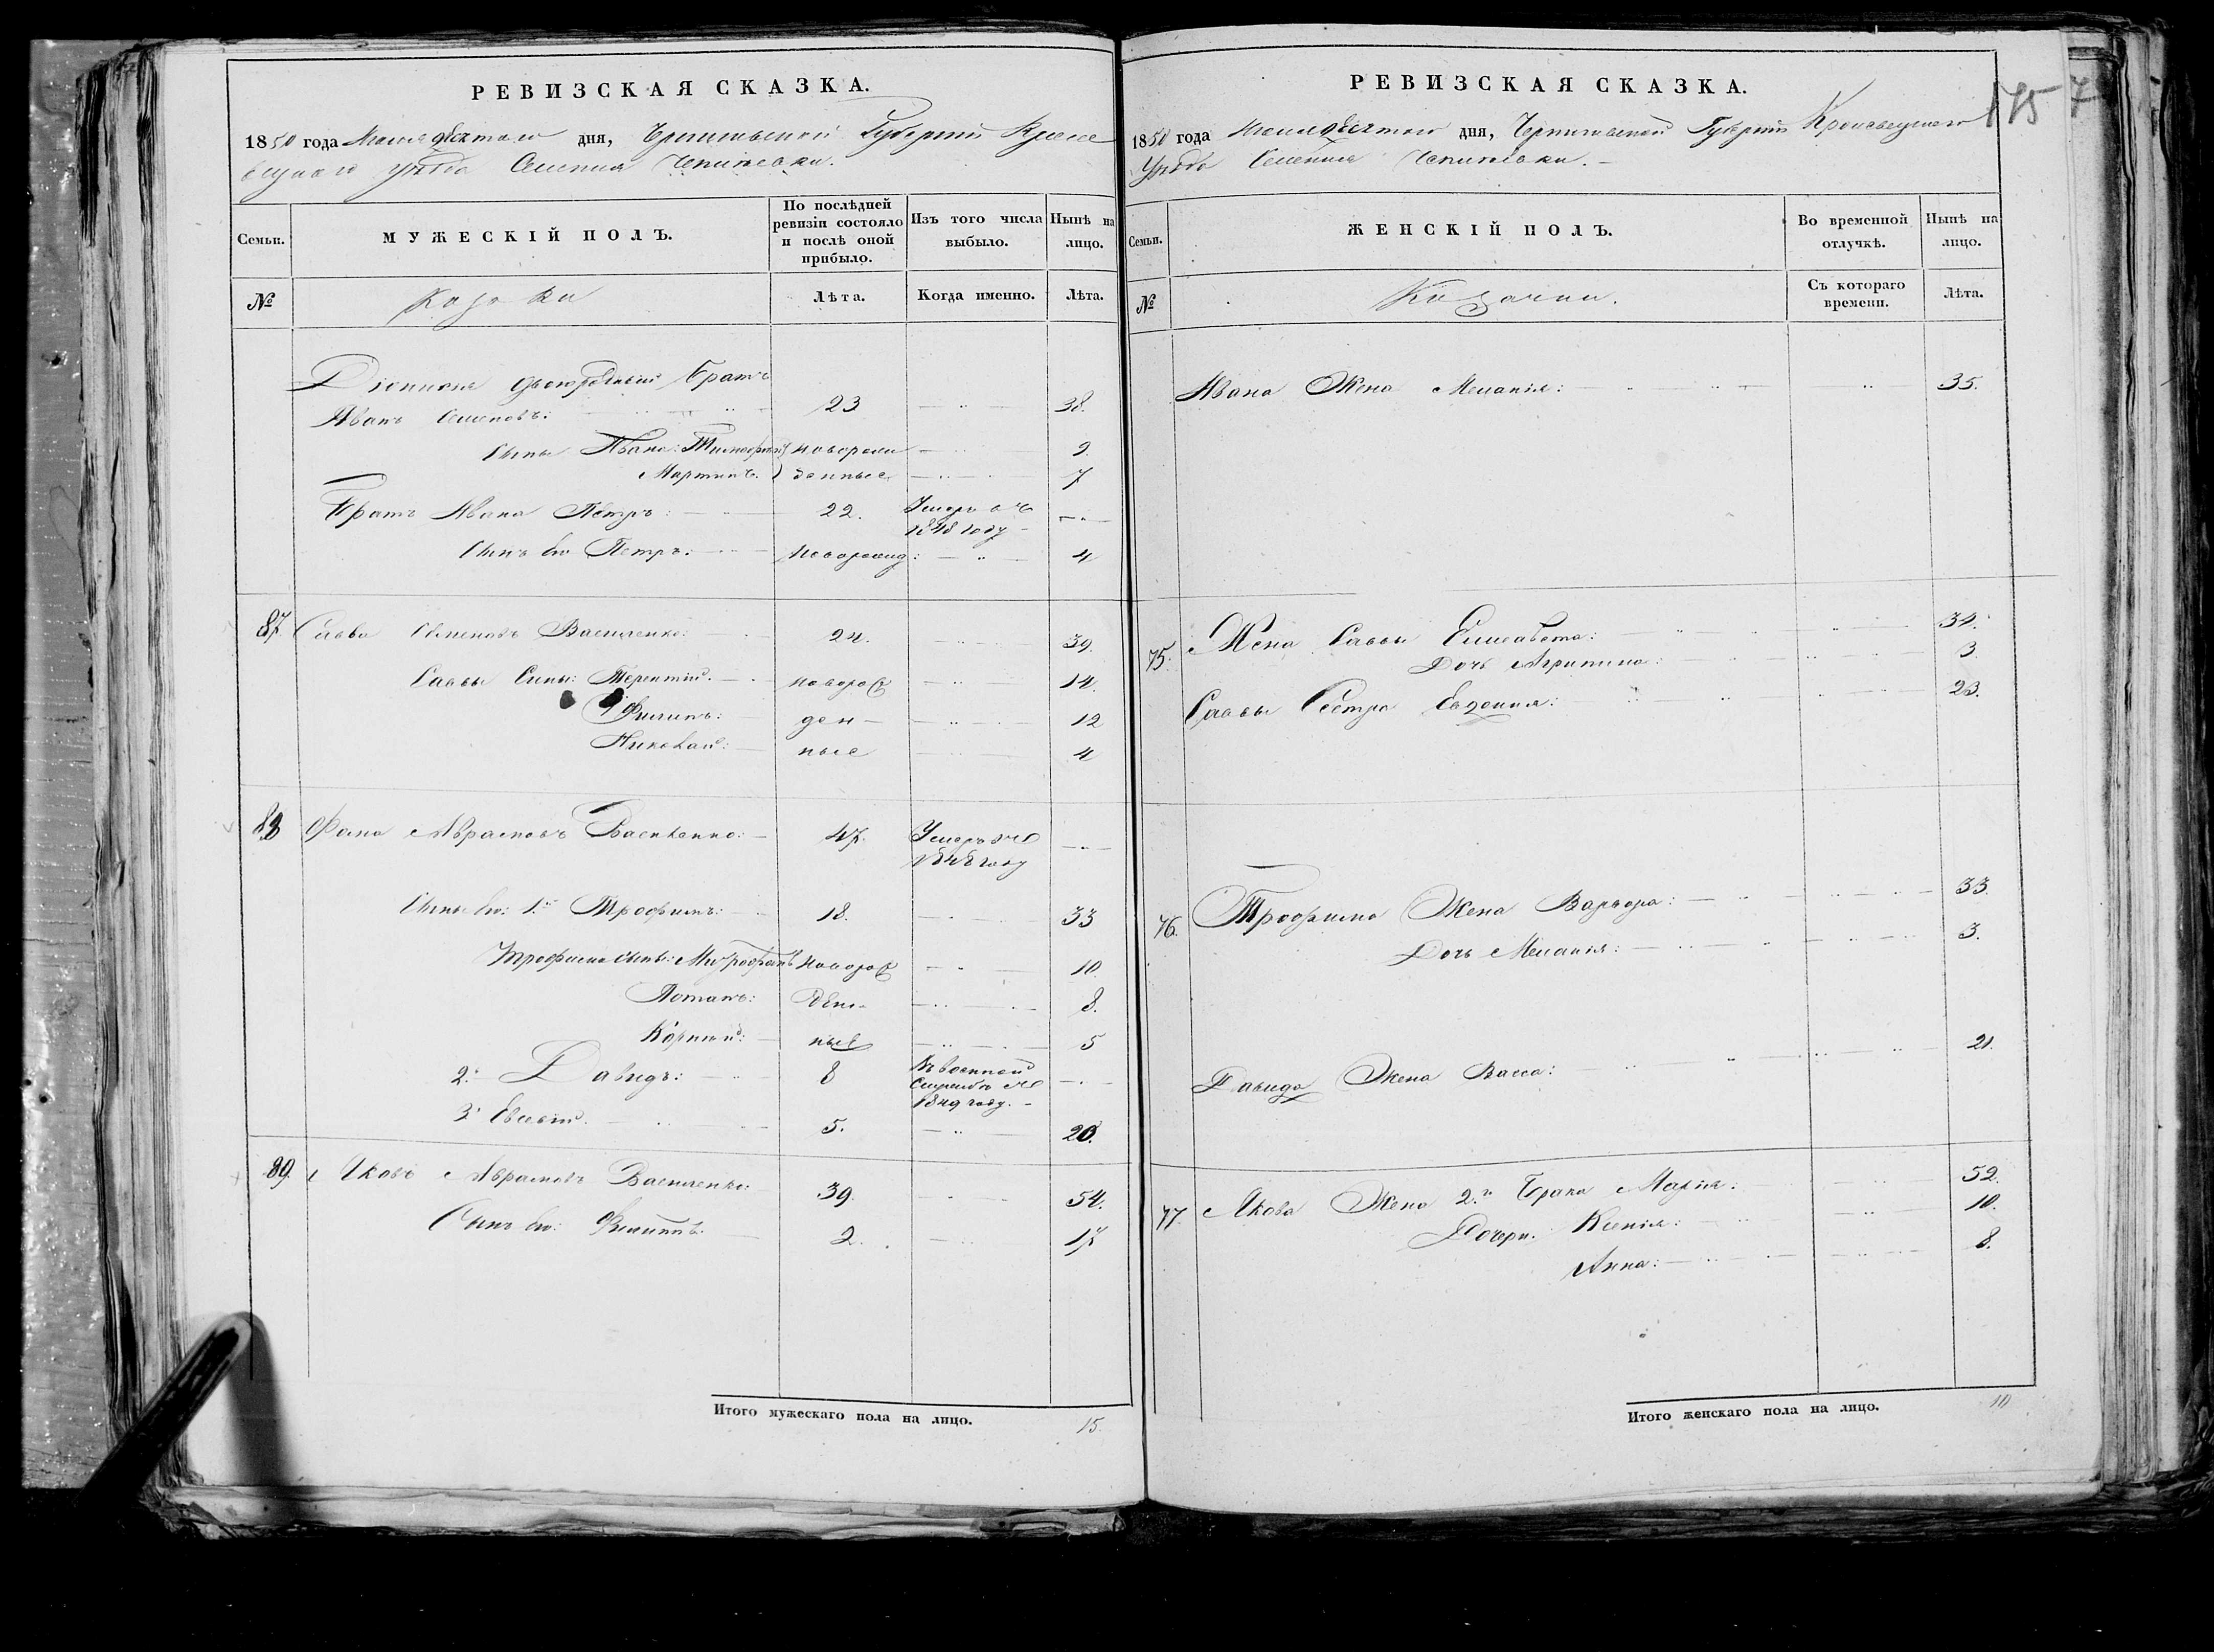 РЕВИЗСКАЯ СКАЗКА.
1850 года дня, Черниговской Губерніи Кроле
вецкаго уѣзда Селенія
Семьи.
МУЖЕСКІЙ ПОЛЪ.
По послѣдней ревизіи состояло и послѣ оной прибыло.
Изъ того числа выбыло.
Нынѣ на лицо.
№
Козаки
Лѣта.
Когда именно.
Лѣта.
двоюродный Братъ
Иванъ Семеновъ: 23 38.
Сыны Ивана: Тимофей новорож 9
Мартинъ. денные 7
Братъ Ивана Петръ: 22. Умеръ въ 1848 году
Сынъ его Петръ: новорожд: 4
87. Савва Семеновъ Василенко: 24. 39.
Саввы Сыны: Терентій. новорож 14.
Филипъ: ден 12
Николай: ные 4
88 Фома Абрамовъ Василенко: 47. Умеръ въ 1848 году
Сыны его: 1.й Трофимъ: 18. 33
Трофима сыны: Митрофанъ новорож 10
Потапъ: ден- 8.
Корнній: ные 5
2.й Давидъ: 8 Въ военной Службѣ съ 1849 году.
3й Евсевій. 5. 20.
89. Яковъ Абрамовъ Василенко: 39. 54.
Сынъ его: Филиппъ: 2. 17
Итого мужескаго пола на лицо. 15.
РЕВИЗСКАЯ СКАЗКА.
175
1850 года дня, Черниговской Губерніи Кролевецкаго
Уѣзда Селенія
Семьи.
ЖЕНСКІЙ ПОЛЪ.
Во временной отлучкѣ.
Нынѣ на лицо.
№
Козачки.
Съ котораго времени.
Лѣта.
Ивана Жена Меланія: 35.
75. Жена Саввы Елисавета: 34.
Дочь Агрипина: 3
Саввы Сестра Евдокия: 23.
76. Трофима Жена Варвара: 33.
Дочь Меланія: 3.
Давида Жена Васса: 21.
77. Якова Жена 2.го Брака Марія: 52.
Дочери. Ксенія: 10.
Анна: 8.
Итого женскаго пола на лицо. 10